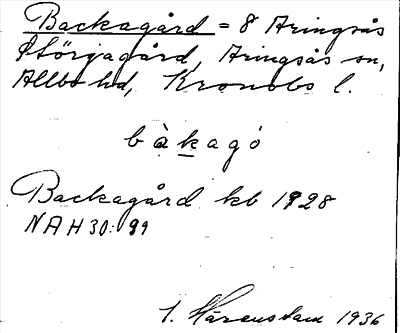 Backagård = 8 Aringsås
Störjagård, Aringsås sn,
Allbo hd, Kronobs l.
bàkagó
Backagård kb 1928
NAH 30:99
1936